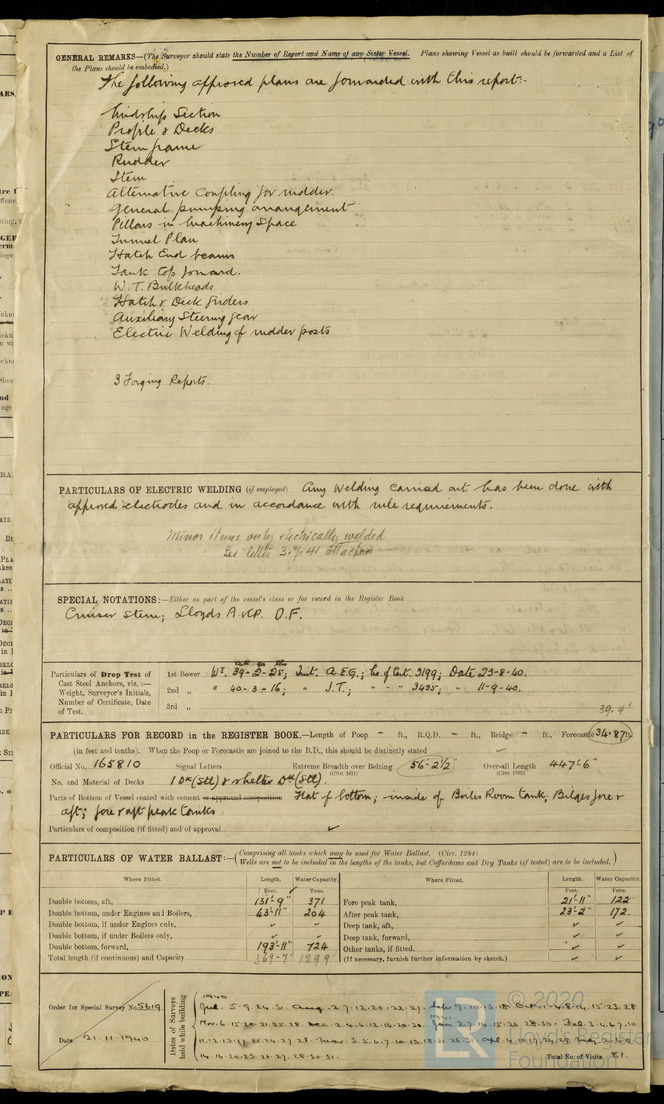 GENERAL REMARKS—(The Surveyor should state the Number of Report and Name of any Sister Vessel. Plans showing Vessel as built should be forwarded and a List of
the Plans should be embodied.)
The following approved plans are forwarded with this report:-
Midship Section
Profile & Decks
Stern frame
Rudder
Stem
Alternative Coupling for rudder.
General pumping arrangement
Pillars in Machinery Space
Tunnel Plan
Hatch End beams
Tank top forward.
W.T. Bulkheads
Hatch & Deck Girders
Auxiliary Steering gear
Electric Welding of rudder posts
3 Forging Reports.
PARTICULARS OF ELECTRIC WELDING (if employed) Any welding carried out has been done with
approved electrodes and in accordance with rule requirements.
Minor items only electrically welded
See letter 3.9.41 attached
SPECIAL NOTATIONS:—Either as part of the vessel's class or for record in the Register Book
Cruiser Stern; Lloyds A & CP. D.F.
Particulars of Drop Test of
Cast Steel Anchors, viz. :—
Weight, Surveyor's Initials,
Number of Certificate, Date
of Test.
1st Bower Wt. 39-2-25; Init. A.E.G.; No. of Cert. 3199; Date 23-8-40.
2nd „ „ 40-3-16; „ J.T.; „ - „ - 3435; „ 11-9-40.
3rd „
39.4'
PARTICULARS FOR RECORD in the REGISTER BOOK.—Length of Poop - ft., R.Q.D. - ft., Bridge - ft., Forecastle 34.87 ft.
(in feet and tenths). When the Poop or Forecastle are joined to the B.D., this should be distinctly stated
Official No. 165810 Signal Letters Extreme Breadth over Belting 56'-2½" Over-all Length 447'-6"
(Circ. 1611) (Circ. 1703)
No. and Material of Decks 1 Dk (Stl) & Shelter Dk (Stl).
Parts of Bottom of Vessel coated with cement or approved composition Flat of bottom; inside of Boiler Room tank, Bilges fore &
aft; fore & aft peak tanks
Particulars of composition (if fitted) and of approval ✓
PARTICULARS OF WATER BALLAST:—(Comprising all tanks which may be used for Water Ballast. (Circ. 1284)
Wells are not to be included in the lengths of the tanks, but Cofferdams and Dry Tanks (if tested) are to be included.)
Where Fitted. Length. Water Capacity. Where Fitted. Length. Water Capacity.
Feet. Tons. Feet. Tons.
Double bottom, aft, 131'-9" 371 Fore peak tank, 21'-11" 122
Double bottom, under Engines and Boilers, 43'-11" 204 After peak tank, 23'-2" 172
Double bottom, if under Engines only, ✓ ✓ Deep tank, aft, ✓ ✓
Double bottom, if under Boilers only, ✓ ✓ Deep tank, forward, ✓ ✓
Double bottom, forward, 193'-11" 724 Other tanks, if fitted, ✓ ✓
Total length (if continuous) and Capacity 369-7" 1299 (If necessary, furnish further information by sketch.)
Order for Special Survey No. 5619
Date 21-11-1940
Dates of Surveys
held while building
1940
Total No. of Visits 81.
© 2020
Lloyd's Register
Foundation
LR